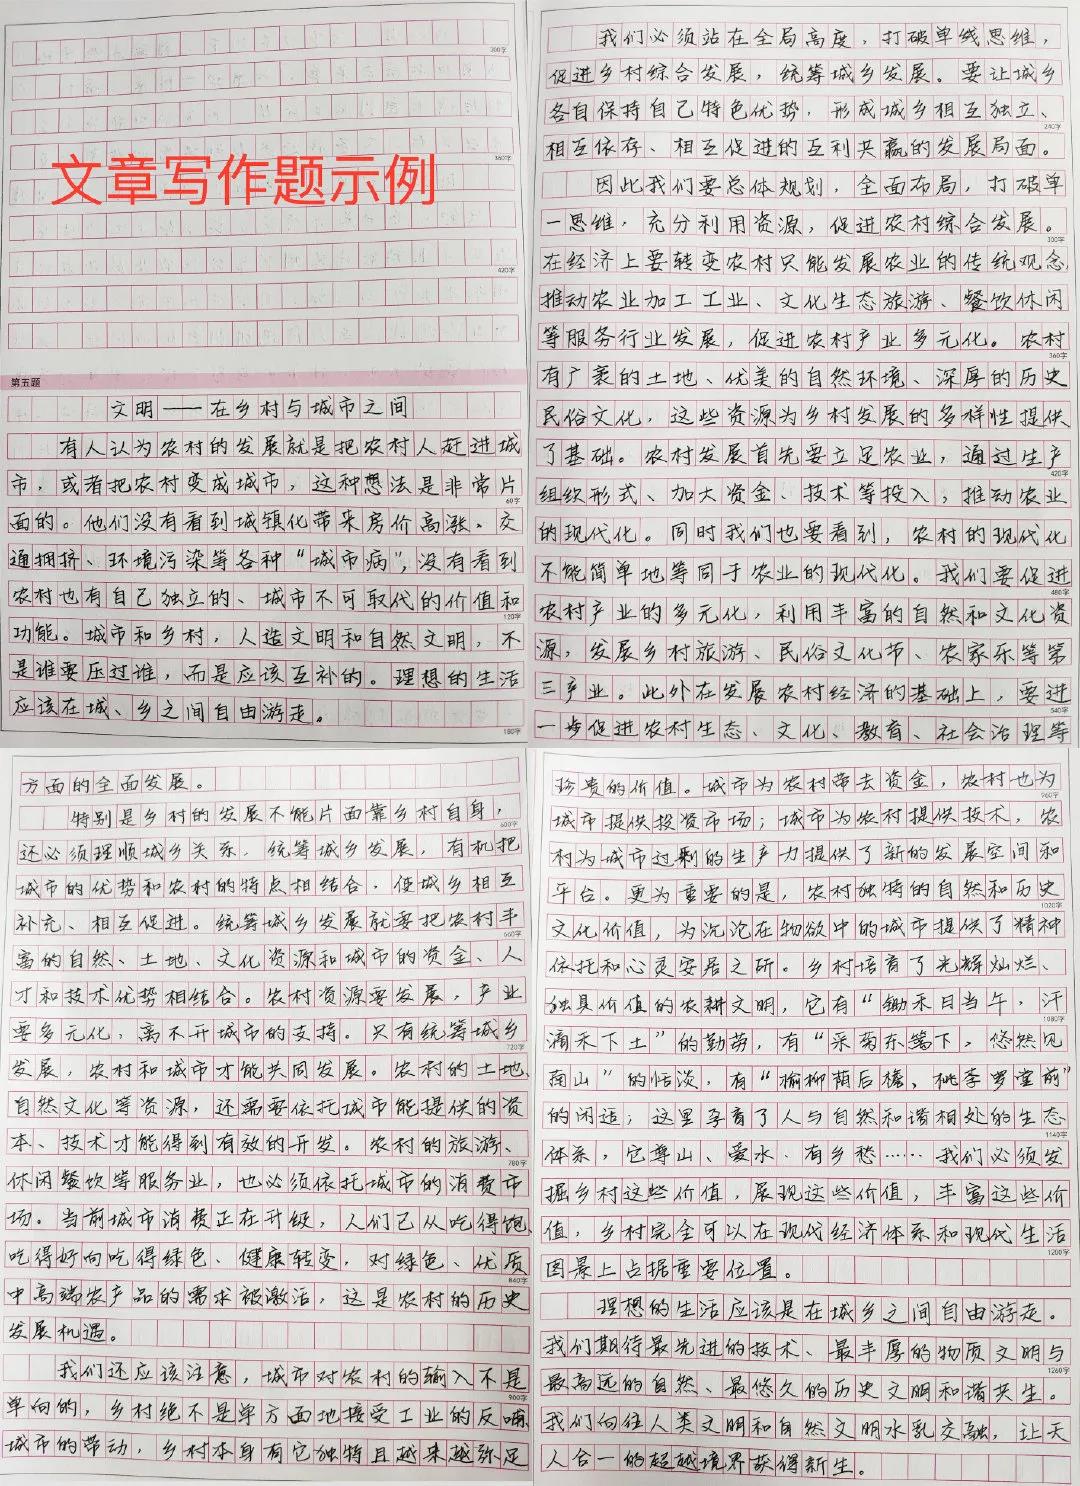 300字
360字
文章写作题示例
420字
第五题
文明——在乡村与城市之间
有人认为农村的发展就是把农村人赶进城
市，或者把农村变成城市，这种想法是非常片
60字
面的。他们没有看到城镇化带来房价高涨、交
通拥挤、环境污染等各种“城市病”，没有看到
农村也有自己独立的、城市不可取代的价值和
120字
功能。城市和乡村，人造文明和自然文明，不
是谁要压过谁，而是应该互补的。理想的生活
应该在城、乡之间自由游走。
180字
我们必须站在全局高度，打破单线思维，
促进乡村综合发展，统筹城乡发展。要让城乡
各自保持自己特色优势，形成城乡相互独立、
240字
相互依存、相互促进的互利共赢的发展局面。
因此我们要总体规划，全面布局，打破单
一思维，充分利用资源，促进农村综合发展。
300字
在经济上要转变农村只能发展农业的传统观念，
推动农业加工工业、文化生态旅游、餐饮休闲
等服务行业发展，促进农村产业多元化。农村
360字
有广袤的土地、优美的自然环境、深厚的历史
民俗文化，这些资源为乡村发展的多样性提供
了基础。农村发展首先要立足农业，通过生产
420字
组织形式、加大资金、技术等投入，推动农业
的现代化。同时我们也要看到，农村的现代化
不能简单地等同于农业的现代化。我们要促进
480字
农村产业的多元化，利用丰富的自然和文化资
源，发展乡村旅游、民俗文化节、农家乐等第
三产业。此外在发展农村经济的基础上，要进
540字
一步促进农村生态、文化、教育、社会治理等
方面的全面发展。
特别是乡村的发展不能片面靠乡村自身，
600字
还必须理顺城乡关系，统筹城乡发展，有机把
城市的优势和农村的特点相结合，使城乡相互
补充、相互促进。统筹城乡发展就要把农村丰
660字
富的自然、土地、文化资源和城市的资金、人
才和技术优势相结合。农村资源要发展，产业
要多元化，离不开城市的支持。只有统筹城乡
720字
发展，农村和城市才能共同发展。农村的土地、
自然文化等资源，还需要依托城市能提供的资
本、技术才能得到有效的开发。农村的旅游、
780字
休闲餐饮等服务业，也必须依托城市的消费市
场。当前城市消费正在升级，人们已从吃得饱、
吃得好向吃得绿色、健康转变，对绿色、优质
840字
中高端农产品的需求被激活，这是农村的历史
发展机遇。
我们还应该注意，城市对农村的输入不是
900字
单向的，乡村绝不是单方面地接受工业的反哺
城市的带动，乡村本身有它独特且越来越弥足
珍贵的价值。城市为农村带去资金，农村也为
960字
城市提供投资市场；城市为农村提供技术，农
村为城市过剩的生产力提供了新的发展空间和
平台。更为重要的是，农村独特的自然和历史
1020字
文化价值，为沉沦在物欲中的城市提供了精神
依托和心灵安居之所。乡村培育了光辉灿烂、
独具价值的农耕文明，它有“锄禾日当午，汗
1080字
滴禾下土”的勤劳，有“采菊东篱下，悠然见
南山”的恬淡，有“榆柳荫后檐，桃李罗堂前”
的闲适；这里孕育了人与自然和谐相处的生态
1140字
体系，它尊山、爱水、有乡愁……我们必须发
掘乡村这些价值，展现这些价值，丰富这些价
值，乡村完全可以在现代经济体系和现代生活
1200字
图景上占据重要位置。
理想的生活应该是在城乡之间自由游走。
我们期待最先进的技术、最丰厚的物质文明与
1260字
最高远的自然、最悠久的历史文明和谐共生。
我们向往人类文明和自然文明水乳交融，让天
人合一的超越境界获得新生。